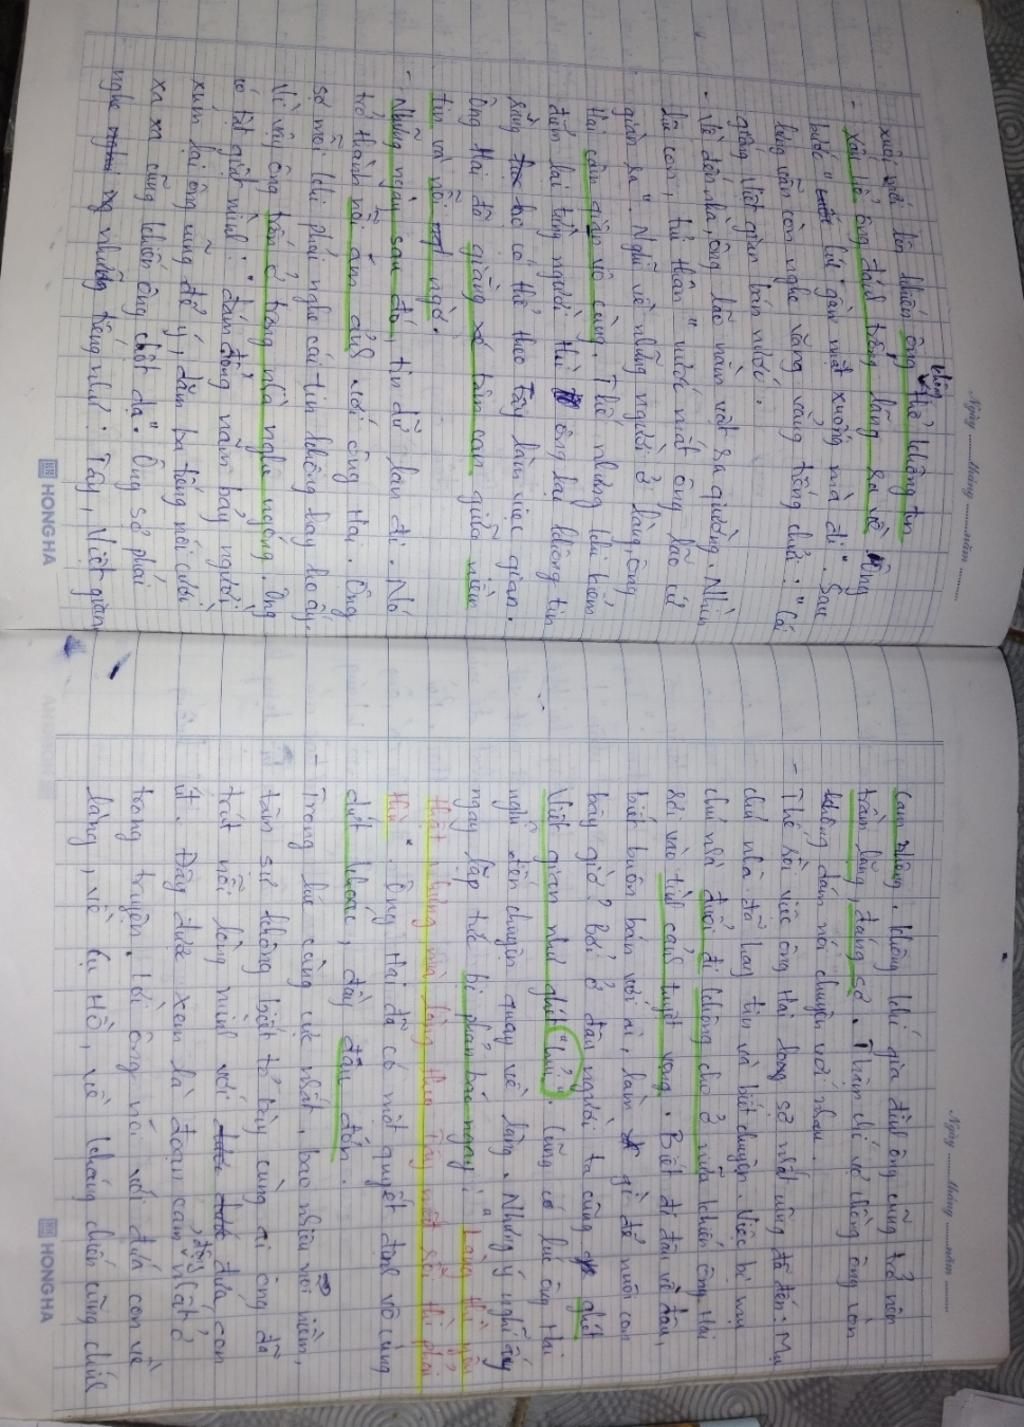 Ngày ........ tháng ........ năm ........
xuôi với lên khiến ông không thể không tin
- Xấu hổ ông đánh trống lãng ra về. Ông
bước " cúi gằm mặt xuống mà đi". Sau
lưng vẫn còn nghe văng vẳng tiếng chửi: " Cái
giống Việt gian bán nước.
- Về đến nhà, ông lão nằm vật ra giường. Nhìn
lũ con, tủi thân " nước mắt ông lão cứ
giàn ra". Nghĩ về những người ở làng, ông
Hai căm giận vô cùng. Thế nhưng khi kiểm
điểm lại từng người thì ông lại không tin
rằng họ có thể theo Tây làm việc gian.
Ông Hai đã giằng xé tâm can giữa niềm
tin và nỗi ngờ.
- Những ngày sau đó, tin dữ lan đi. Nó
trở thành nỗi ám ảnh với ông Hai. Ông
sợ mỗi khi phải nghe cái tin không hay ho ấy.
Vì vậy ông trốn ở trong nhà nghe ngóng. Ông
có tật giật mình: " đám đông năm bảy người
xúm lại ông cũng để ý, dăm ba tiếng nói cười
xa xa cũng khiến ông chột dạ". Ông sợ phải
nghe những tiếng như: Tây, Việt gian
HONG HA
Ngày ........ tháng ........ năm ........
cam nhông. không khí gia đình ông cũng trở nên
trầm lắng, đáng sợ. Thậm chí vợ chồng ông còn
không dám nói chuyện với nhau.
- Thế rồi việc ông Hai long sợ nhất cũng đã đến: Mụ
chủ nhà đã hay tin và biết chuyện. Việc bị mụ
chủ nhà đuổi đi không cho ở nữa khiến ông Hai
rơi vào tình cảnh tuyệt vọng. Biết đi đâu về đâu,
biết buôn bán với ai, làm gì để nuôi con
bây giờ? Bởi ở đâu người ta cũng ghét
Việt gian như ghét "hủi". Cũng có lúc ông Hai
nghĩ đến chuyện quay về làng. Nhưng ý nghĩ ấy
ngay lập tức bị phản bác ngay: " Làng thì yêu
thật nhưng mà làng theo Tây mất rồi thì phải
thù". Ông Hai đã có một quyết định vô cùng
dứt khoác, đầy đau đớn.
- Trong lúc cùng cực nhất, bao nhiêu nỗi niềm,
tâm sự không biết tỏ bày cùng ai ông đã
trút nỗi lòng mình với đứa con
út. Đây được xem là đoạn cảm động nhất ở
trong truyện. Lời ông nói với đứa con về
làng, về cụ Hồ, về kháng chiến cũng chính
HONG HA